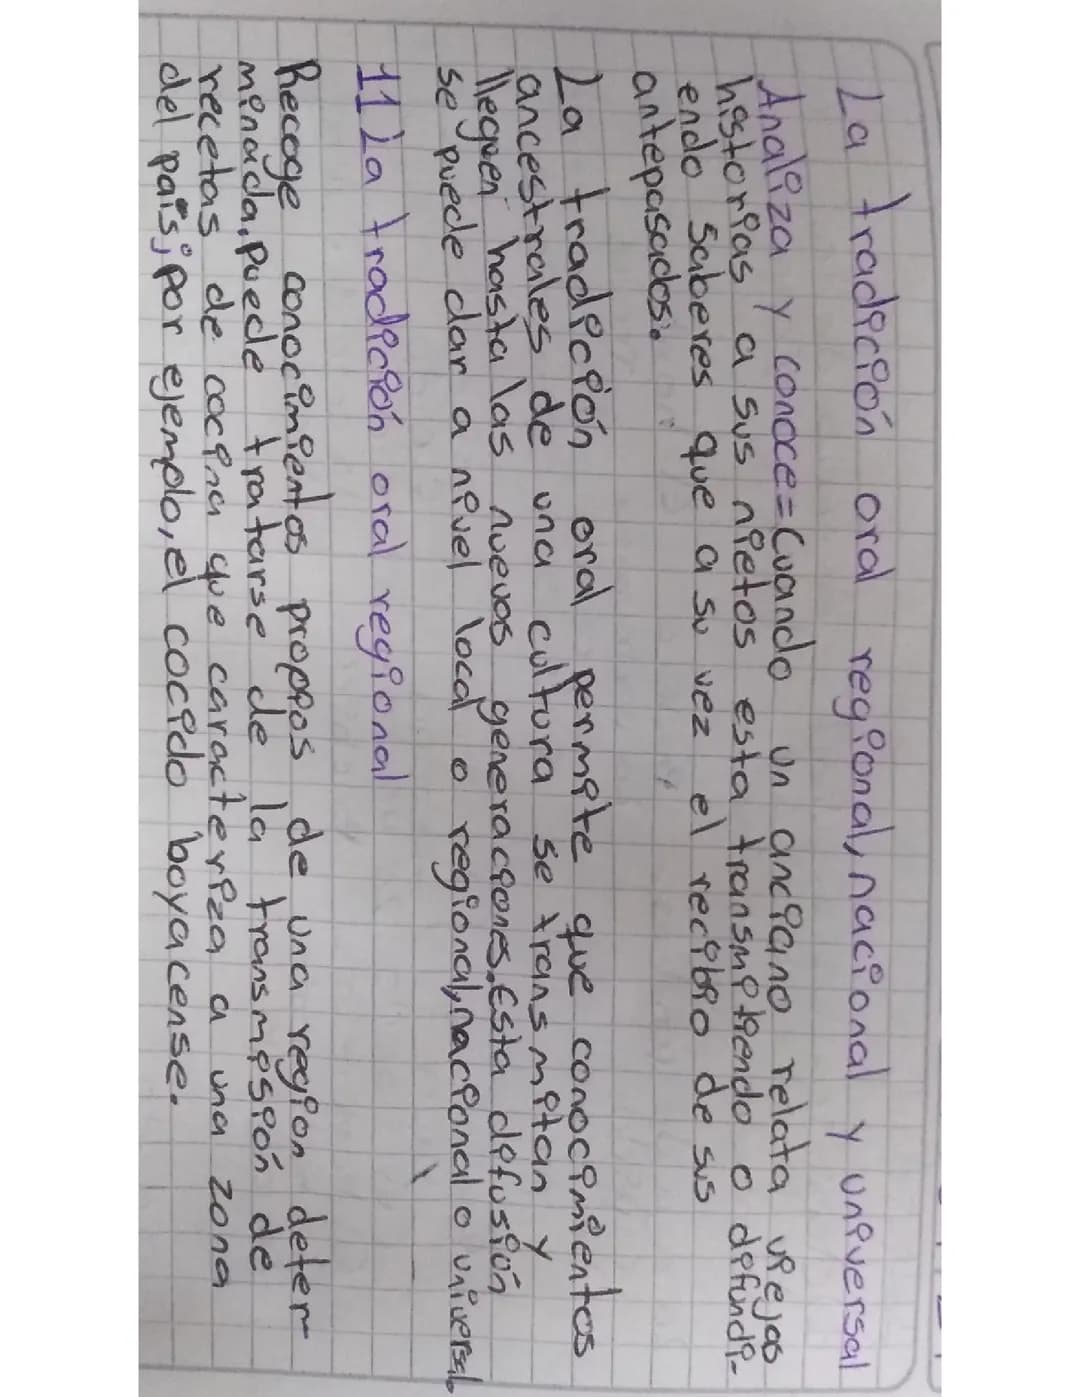 La tradición oral regional, nacional y universal
Analiza y conoce= Cuando un anciano relata viejas
historias a sus nietos esta transmitiendo o difundi-
endo saberes que a su vez el recibio de sus
antepasados.
La tradición oral permite que conocimientos
ancestrales de una cultura se transmitan y
lleguen hasta las nuevas generaciones. Esta difusión
se puede dar a nivel local o regional, nacional o universal.
11 La tradición oral regional
Recoge conocimientos propios de una region deter-
minada. Puede tratarse de la transmisión de
recetas de cocina que caracteriza a una zona
del país; por ejemplo, el cocido boyacense.